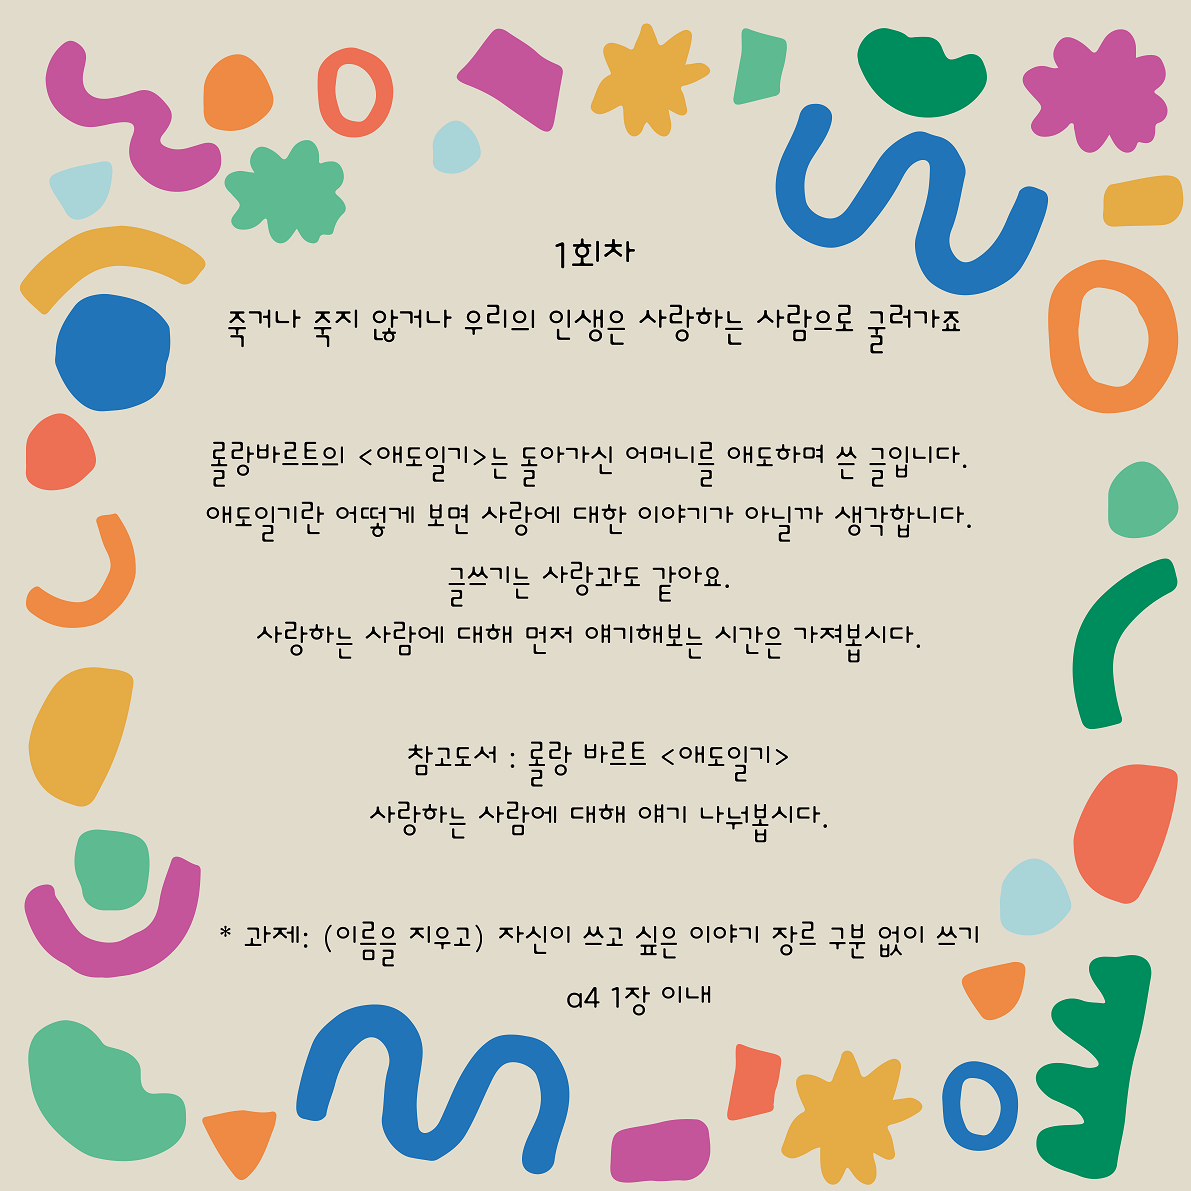 1회차
죽거나 죽지 않거나 우리의 인생은 사랑하는 사람으로 굴러가죠
롤랑바르트의 <애도일기>는 돌아가신 어머니를 애도하며 쓴 글입니다.
애도일기란 어떻게 보면 사랑에 대한 이야기가 아닐까 생각합니다.
글쓰기는 사랑과도 같아요.
사랑하는 사람에 대해 먼저 얘기해보는 시간은 가져봅시다.
참고도서 : 롤랑 바르트 <애도일기>
사랑하는 사람에 대해 얘기 나눠봅시다.
* 과제: (이름을 지우고) 자신이 쓰고 싶은 이야기 장르 구분 없이 쓰기
a4 1장 이내